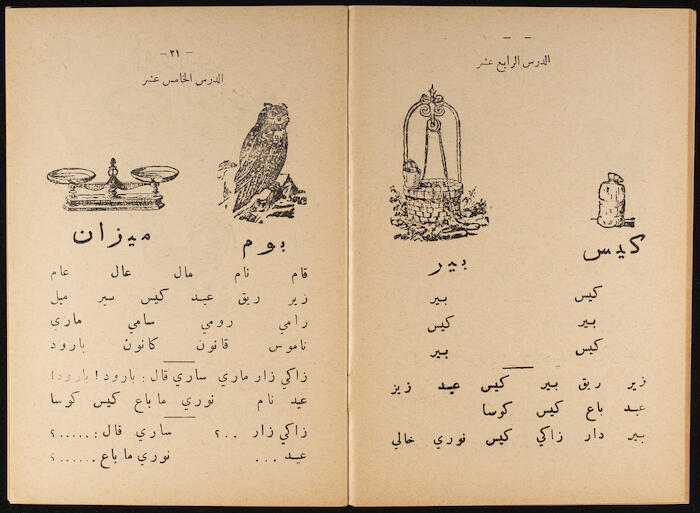 الدرس الرابع عشر
كيس بير
كيس بير
بير كيس
كيس بير
زير ريق بير كيس عيد زيز
عبد باع كيس كوسا
بير دار زاكي كيس نوري خالي
— ٢١ —
الدرس الخامس عشر
بوم ميزان
قام نام مال عال عام
زير ريق عبد كيس سير ميل
رامي رومي سامي ماري
ناموس قانون كانون بارود
زاكي زار ماري ساري قال : بارود ! بارود !
عيد نام نوري ما باع كيس كوسا
زاكي زار ..؟ ساري قال : .....؟
عيد ... نوري ما باع ......؟